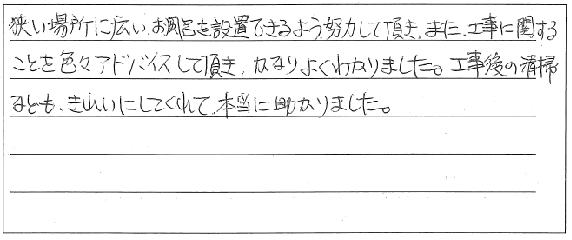 狭い場所に広い、お風呂を設置できるよう努力して頂き、また、工事に関する
ことを色々アドバイスして頂き、かなりよくわかりました。工事後の清掃
なども、きれいにしてくれて、本当に助かりました。